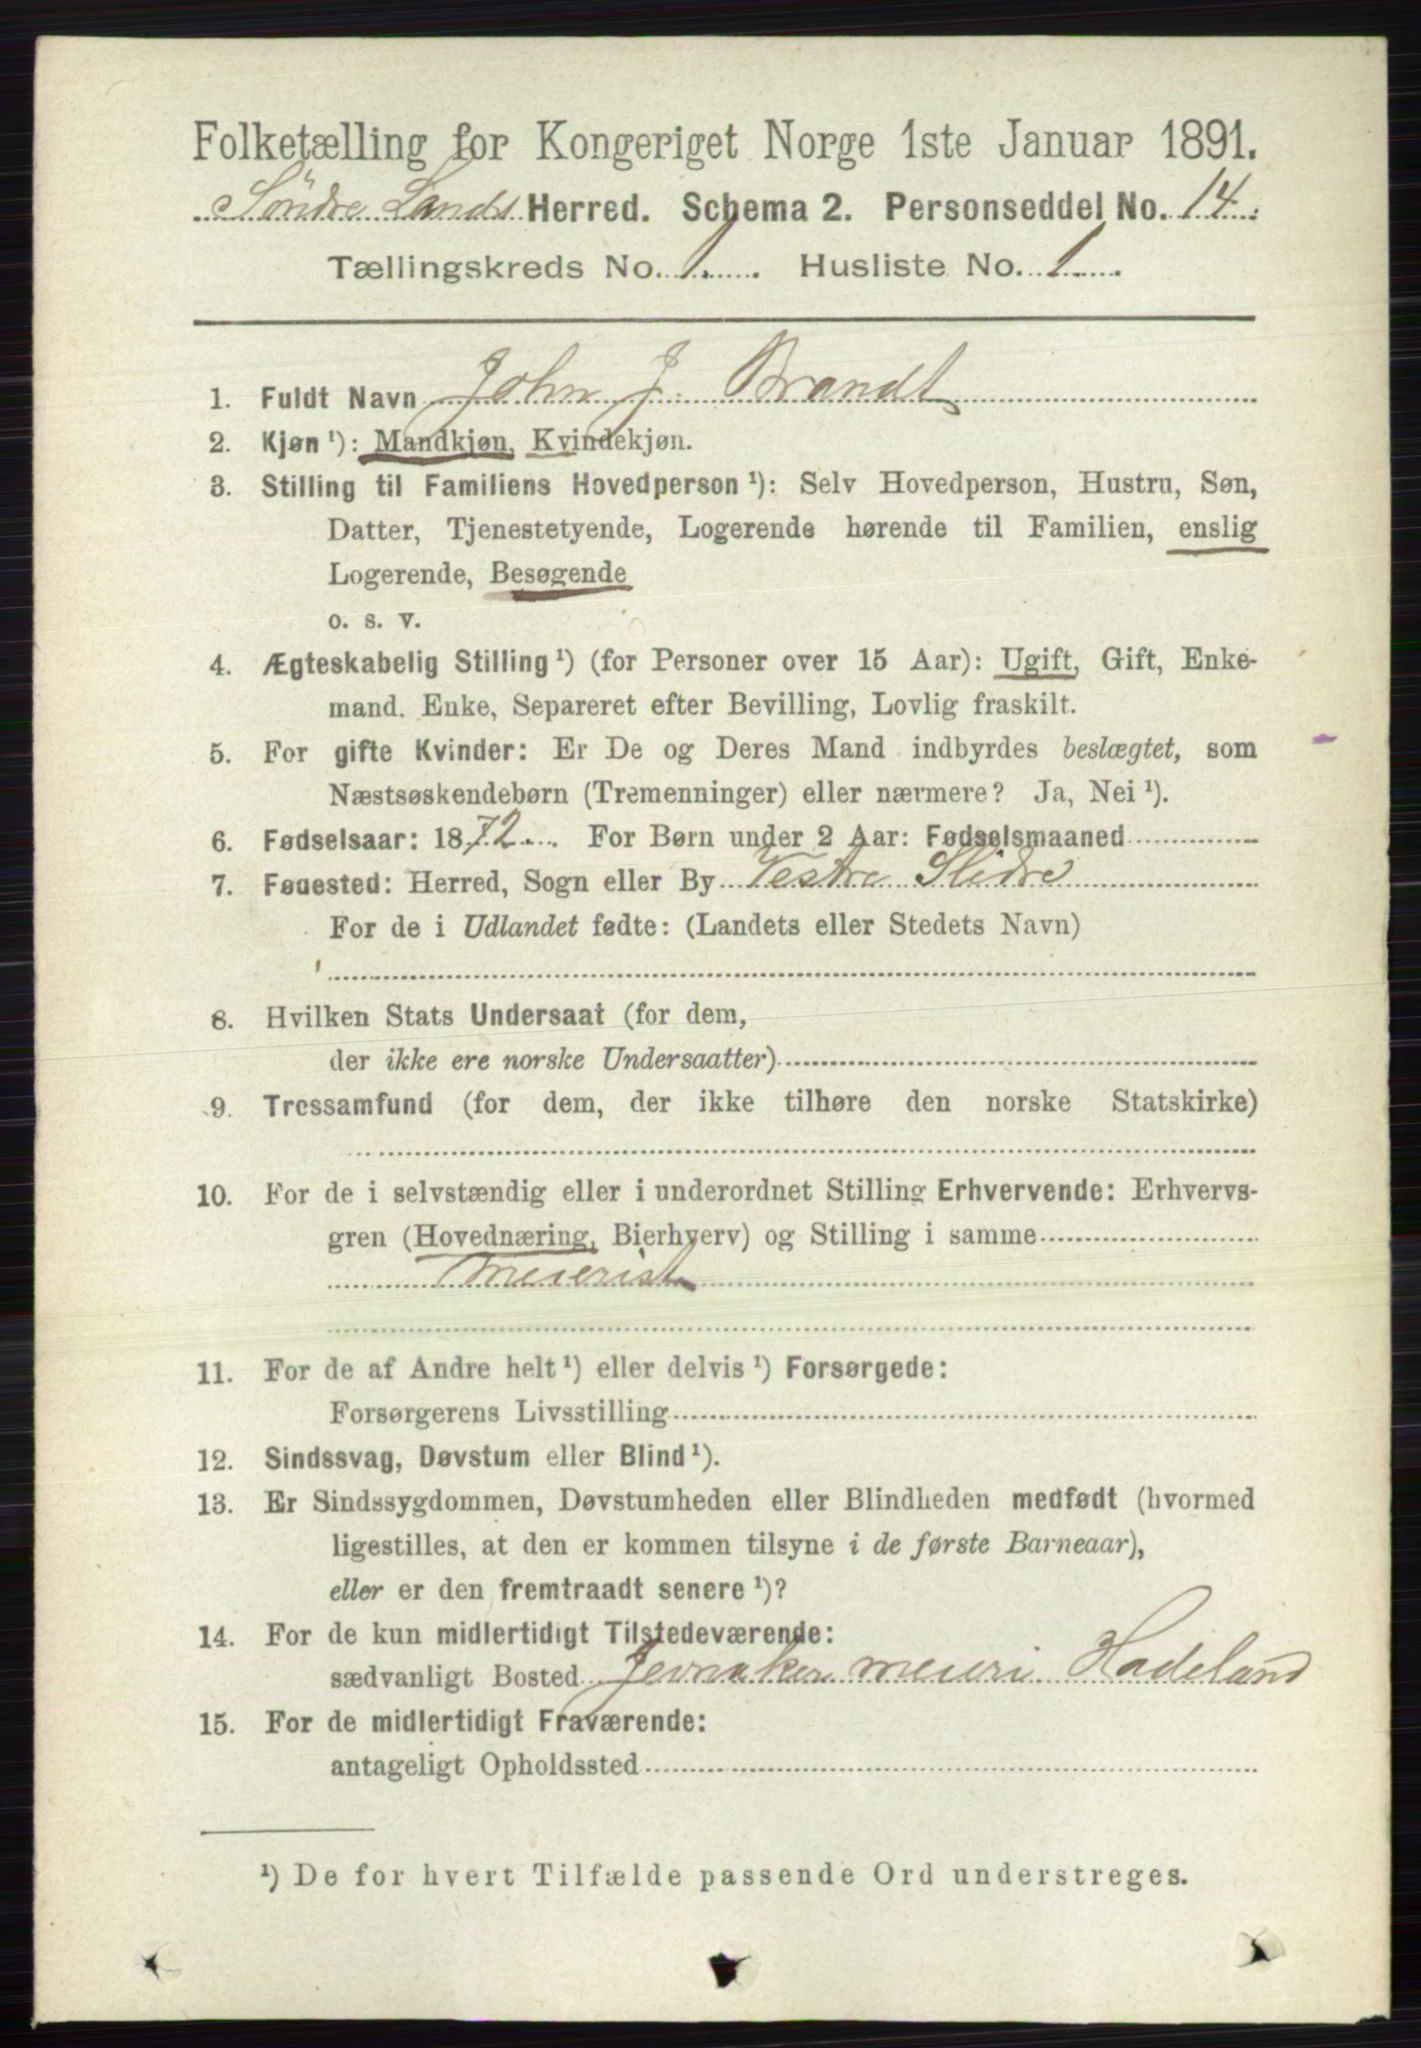 Folketælling for Kongeriget Norge 1ste Januar 1891.
Söndre Lands Herred. Schema 2. Personseddel No. 14.
Tællingskreds No. 1. Husliste No. 1
1. Fuldt Navn John J. Brandt
2. Kjøn ¹): Mandkjøn, Kvindekjøn.
3. Stilling til Familiens Hovedperson ¹): Selv Hovedperson, Hustru, Søn,
Datter, Tjenestetyende, Logerende hørende til Familien, enslig
Logerende, Besøgende
o. s. v.
4. Ægteskabelig Stilling ¹) (for Personer over 15 Aar): Ugift, Gift, Enke-
mand. Enke, Separeret efter Bevilling, Lovlig fraskilt.
5. For gifte Kvinder: Er De og Deres Mand indbyrdes beslægtet, som
Næstsøskendebørn (Tremenninger) eller nærmere? Ja, Nei ¹).
6. Fødselsaar: 1872. For Børn under 2 Aar: Fødselsmaaned
7. Fødested: Herred, Sogn eller By Vestre Slidre
For de i Udlandet fødte: (Landets eller Stedets Navn)
8. Hvilken Stats Undersaat (for dem,
der ikke ere norske Undersaatter)
9. Trossamfund (for dem, der ikke tilhøre den norske Statskirke)
10. For de i selvstændig eller i underordnet Stilling Erhvervende: Erhvervs-
gren (Hovednæring, Bierhverv) og Stilling i samme
meierist
11. For de af Andre helt ¹) eller delvis ¹) Forsørgede:
Forsørgerens Livsstilling
12. Sindssvag, Døvstum eller Blind ¹).
13. Er Sindssygdommen, Døvstumheden eller Blindheden medfødt (hvormed
ligestilles, at den er kommen tilsyne i de første Barneaar),
eller er den fremtraadt senere ¹)?
14. For de kun midlertidigt Tilstedeværende:
sædvanligt Bosted Jevnaker meieri Hadeland
15. For de midlertidigt Fraværende:
antageligt Opholdssted
¹) De for hvert Tilfælde passende Ord understreges.